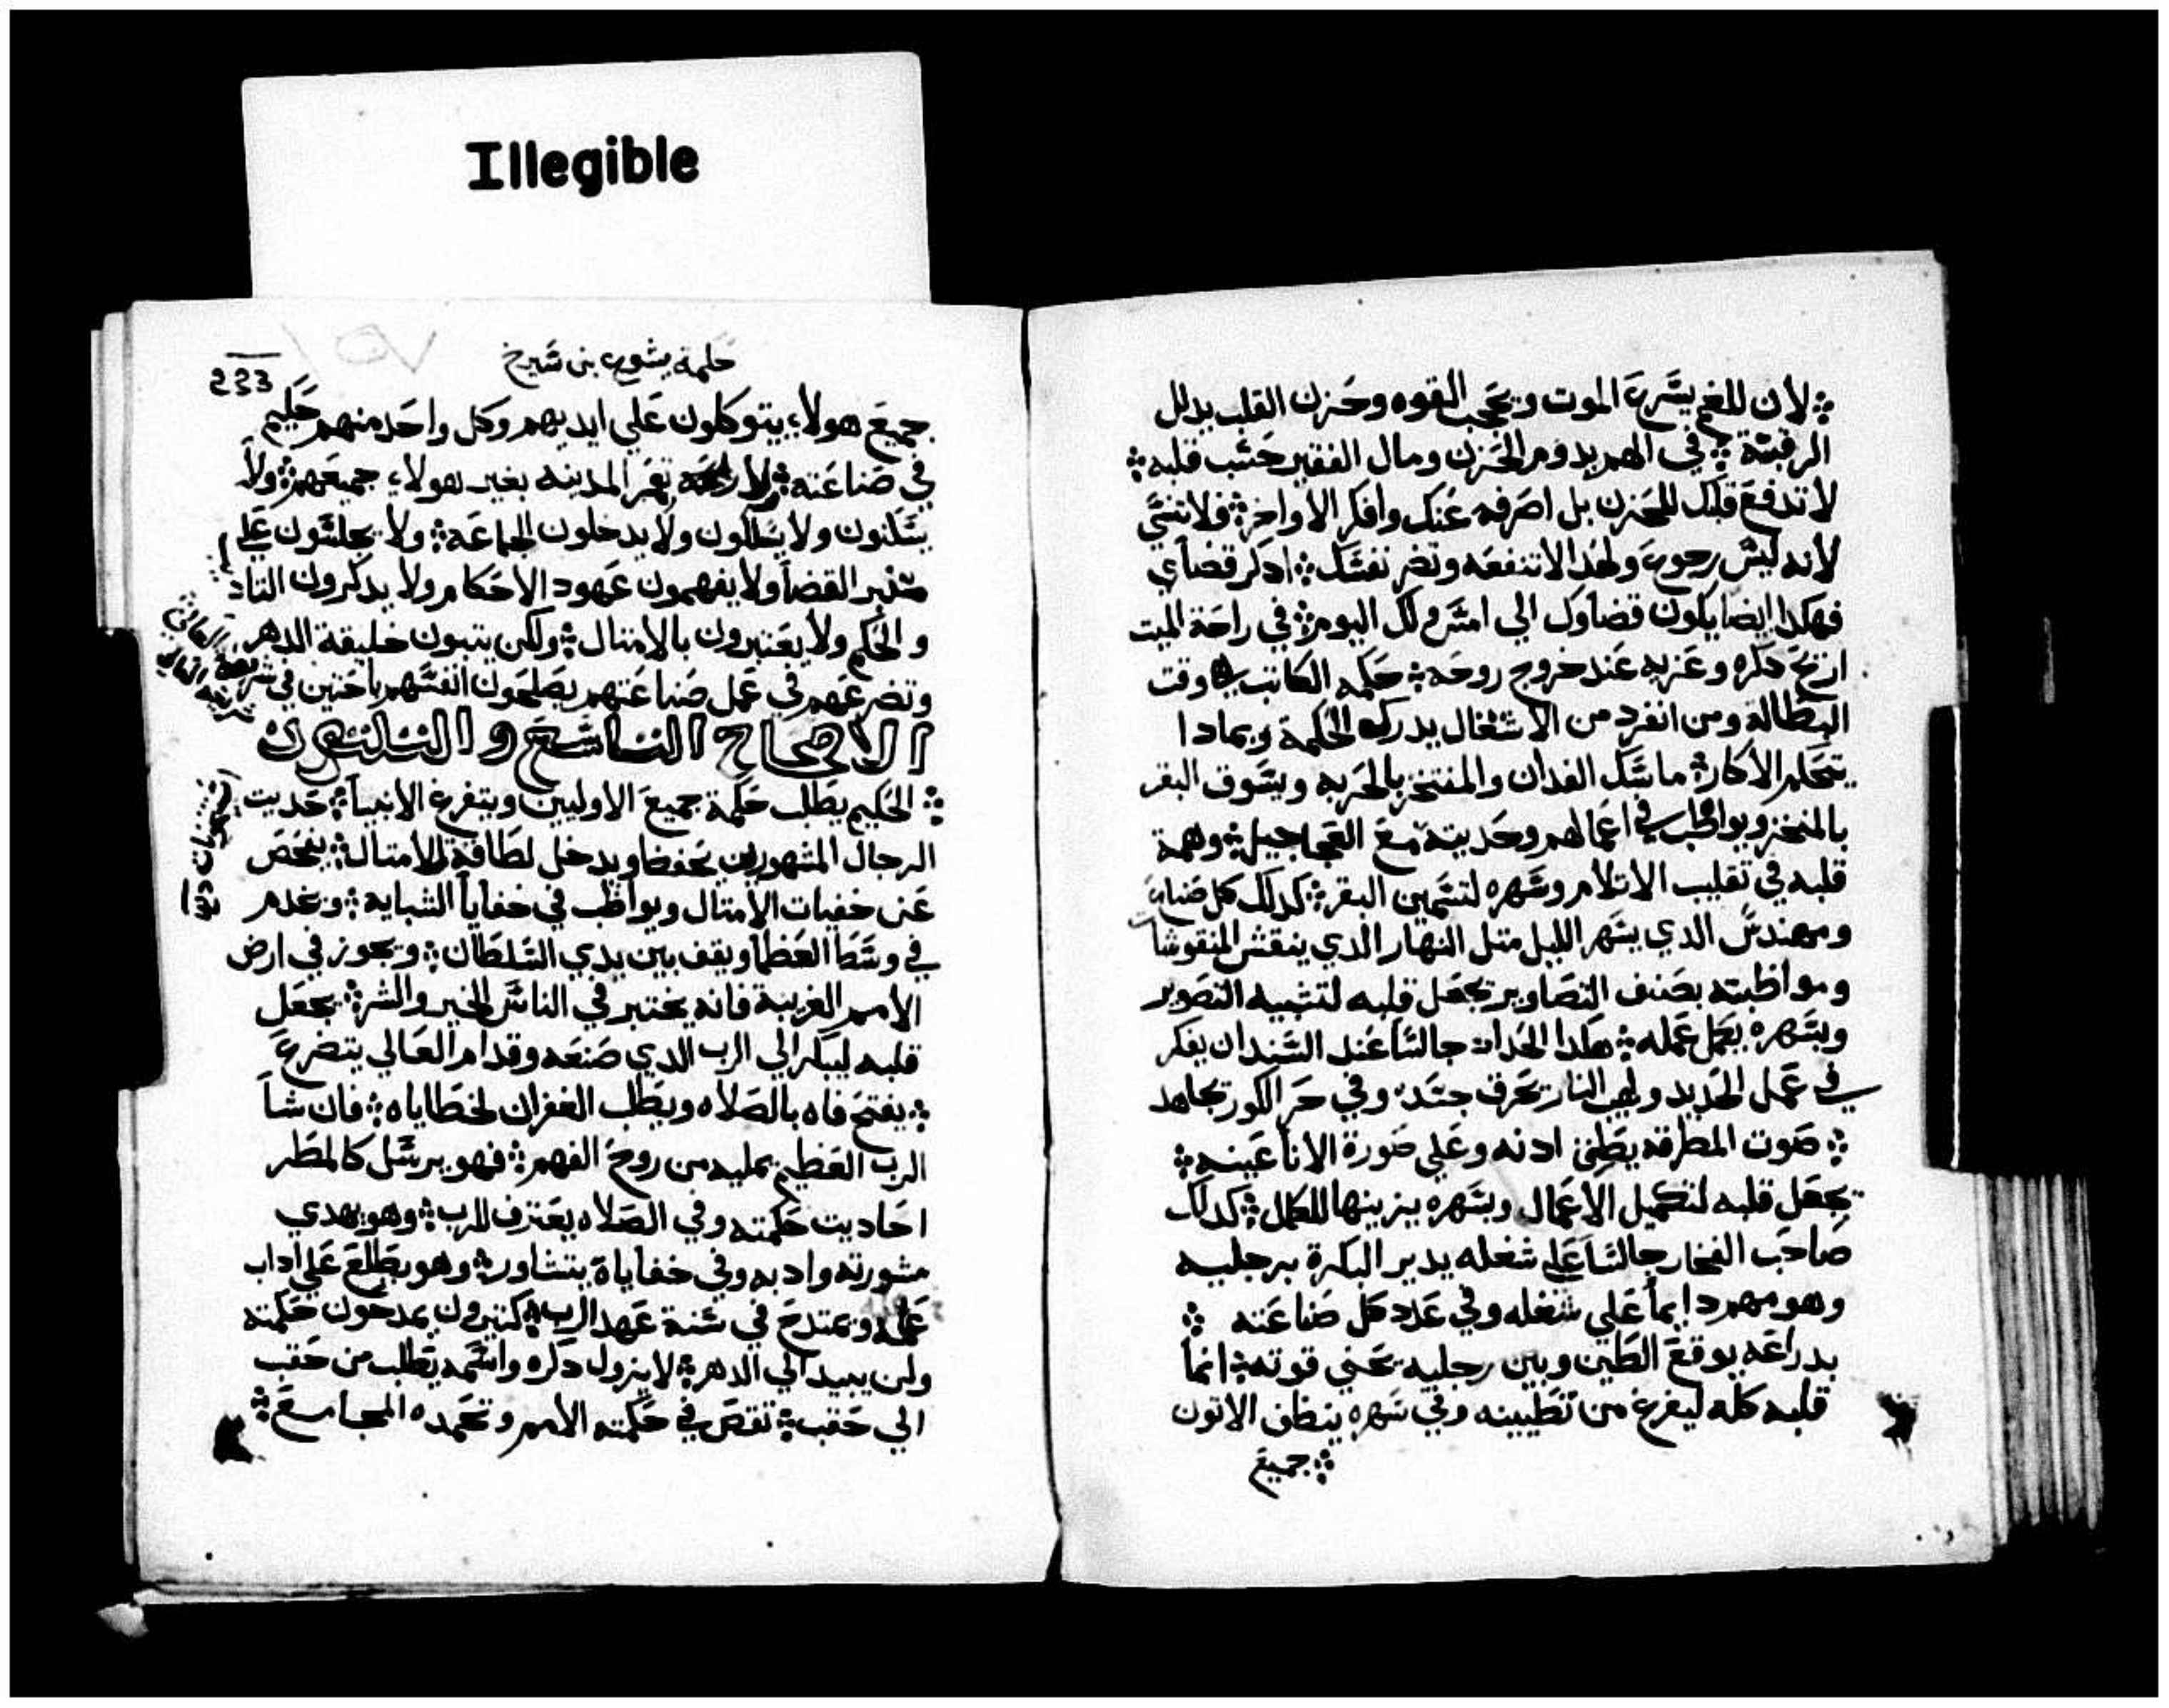 Illegible
لان للغم يسرع الموت ويحجب القوه وحزن القلب يدلل
الرقبة في الهم يدوم الحزن ومال الفقير حسب قلبه
لا تدفع قلبك للحزن بل اصرفه عنك وافكر الاواخر فلا تنسي
لانه ليس رجوع ولهدا لا تنفعه وتضر نفسك ادكر قضاي
فهكدا ايضا يكون قضاوك الي امس ولك اليوم في راحة الميت
ارح دكره وعزيه عند خروج روحه حكمه الكاتب في وقت
البطالة ومن انفرد من الاشغال يدرك الحكمة وبمادا
يتحكم الاكار ماسك الفدان والمفتخر بالحربه ويسوق البقر
بالمنخز ويواظب في اعمالهم وحديته مع العجاجيل وهمة
قلبه في تقليب الاتلام وسهره لتسمين البقر كدلك كل صناع
ومهندس الدي يسهر الليل متل النهار الدي ينقش المنقوشات
ومواظبته بصنف التصاوير يجعل قلبه لتشبيه التصوير
وبسهره يكمل عمله هكدا الحداد جالسا عند السندان يفكر
في عمل الحديد ولهب النار تحرق جسده وفي حر الكور تجاهد
صوت المطرقه يطن ادنه وعلي صورة الانا عينه
يجعل قلبه لتكميل الاعمال وبسهره يزينها للكمال كدلك
صاحب الفخار جالسا علي شغله يدير البكرة برجليه
وهو مهم دايما علي شغله وفي عدد كل صناعته
بدراعه يوقع الطين وبين رجليه يحني قوته انما
قلبه كله ليفرغ من تطيينه وفي سهره ينظف الاتون
جميع
حكمة يشوع بن شيرخ
233
جميع هولاء يتوكلون علي ايديهم وكل واحد منهم حكيم
في صناعته ولا تعمر المدينه بغير هولاء جميعهم ولا
يسكنون ولا يسلكون ولا يدخلون الجماعة ولا يجلسون علي
منبر القضا ولا يفهمون عهود الاحكام ولا يدكرون التاد
والحكم ولا يعتبرون بالامتال ولكن يتبون خليقة الدهر
وتضرعهم في عمل صناعتهم يصلحون انفسهم باحتين في شريعة العالي
الاصحاح التاسع والتلتون
الحكيم يطلب حكمة جميع الاوليين ويتفرغ الانبيا حديت
الرجال المشهورين يحفظ ويدخل لطافة الامتال يفحص
عن خفيات الامتال ويواظب في خفايا الشبايه ويخدم
في وسط العظما ويقف بين يدي السلطان ويجوز في ارض
الامم الغريبة فانه يختبر في الناس الخير والشر يجعل
قلبه ليبكر الي الرب الدي صنعه وقدام العالي يتضرع
يفتح فاه بالصلاه ويطلب الغفران لخطاياه فان شا
الرب العظيم يمليه من روح الفهم فهو يرسل كالمطر
احاديت حكمته وفي الصلاه يعترف للرب وهو يهدي
مشورته وادبه وفي خفاياة يتشاور وهو يطلع علي اداب
علمه ويمتدح في سنة عهد الرب كتيرون يمدحون حكمته
ولن يبيد الي الدهر لا يزول دكره واسمه يطلب من حقب
الي حقب تقص في حكمته الامم وتحمده المجامع